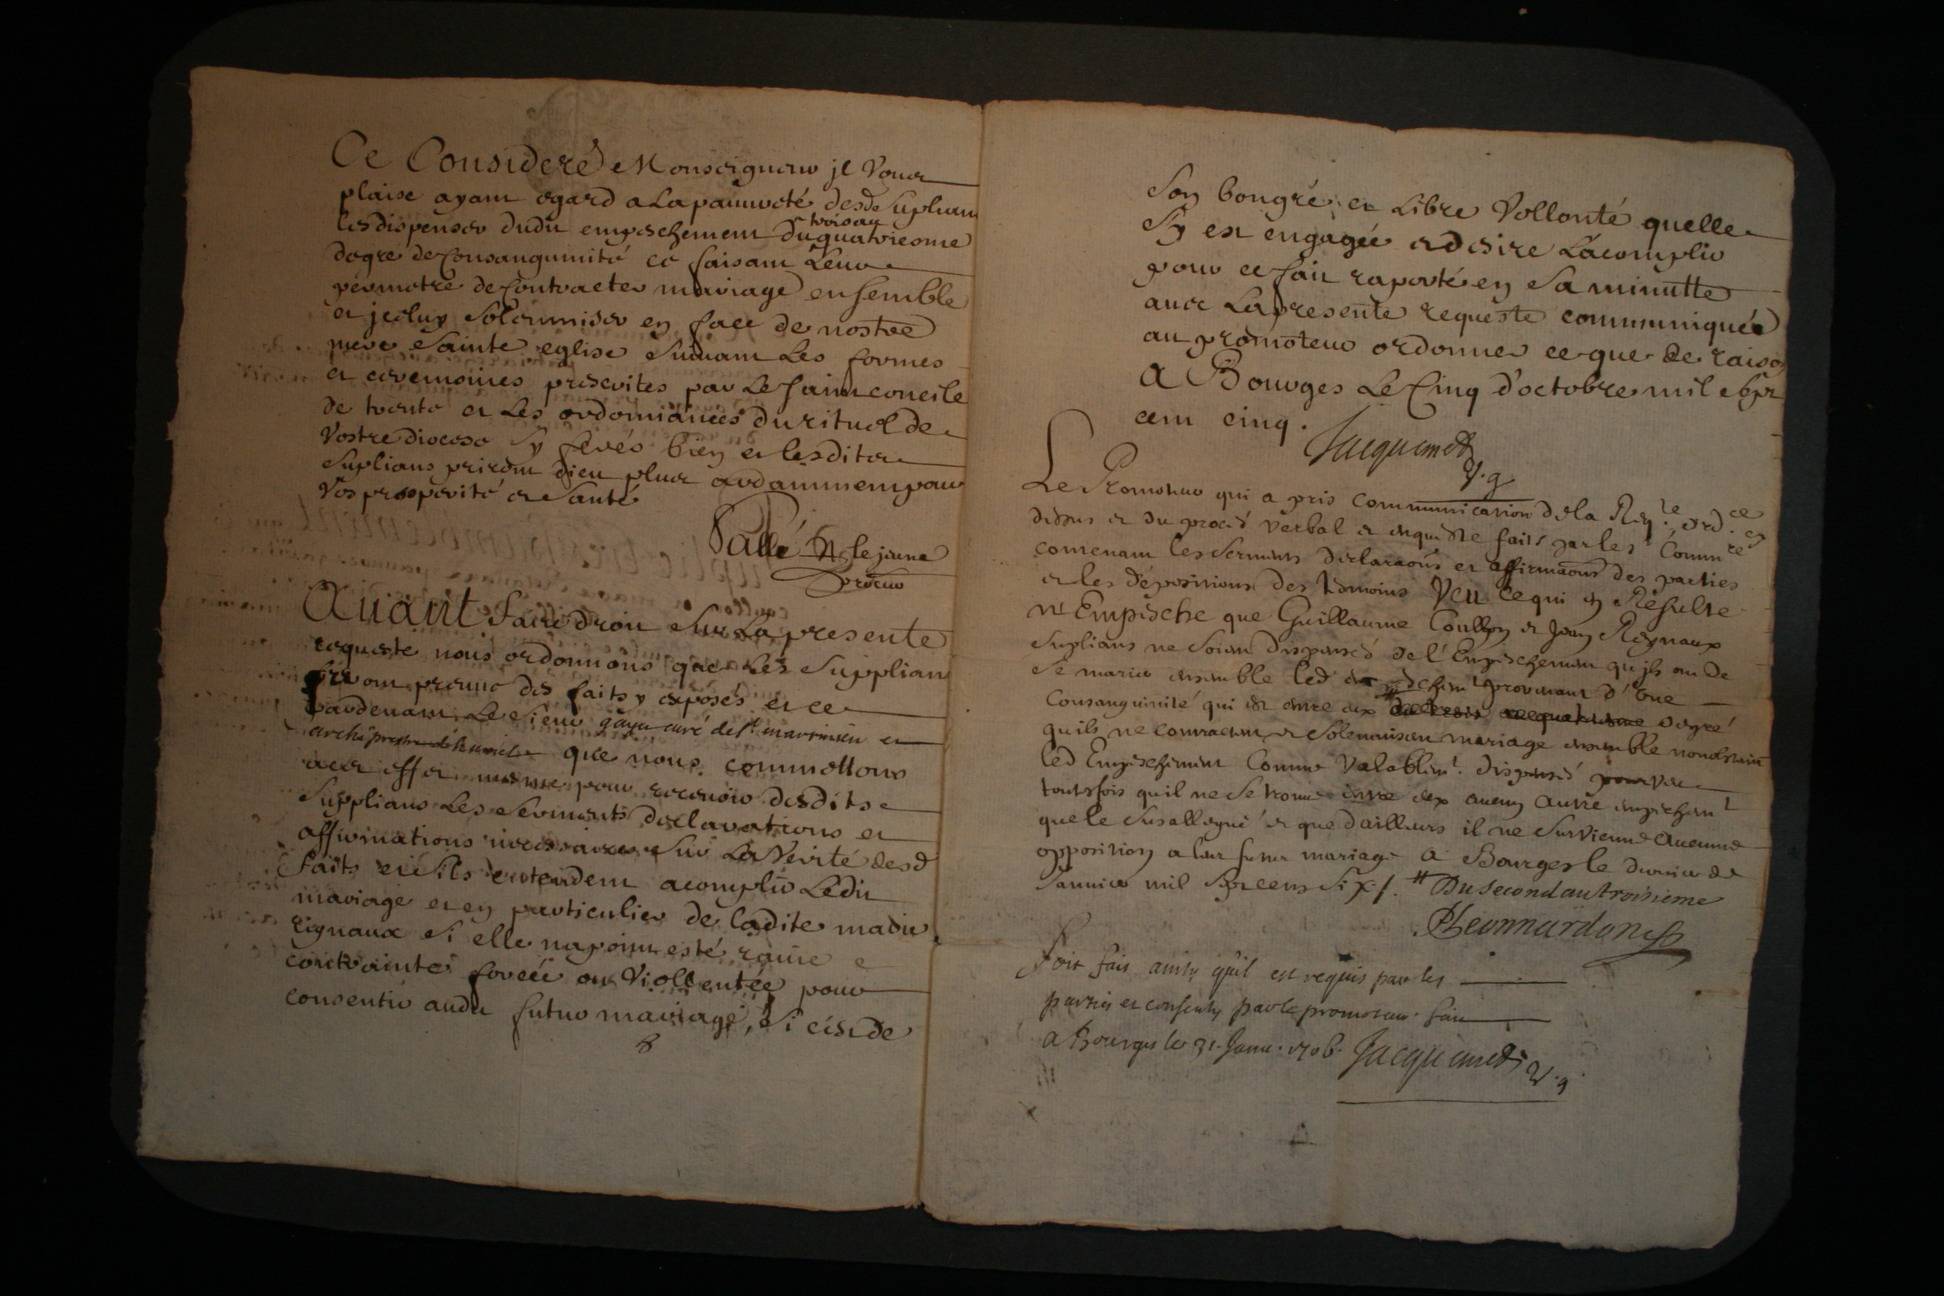 Ce Consideré Monseigneur jl Vous
plaise ayant egard a La pauvreté desds Supliant
les dispenser dudit empeschement du troisau quatriesme
degré de Consanguinité ce faisant Leur
permetre de Contracter mariage ensemble
et jceluy Solemniser en face de nostre
mere Sainte eglise Suivant Les formes
et ceremoines prescrites par Le Saint concile
de trente et Les ordonnances du rituel de
Vostre diocese Sy ferés bien et lesdits
Suplians priront dieu plus ardamment pour
Vos prosperité et Santé
Pallé Le jeune
procur
Auant faire droit Sur La presente
requeste nous ordonnons que Les Supplians
feront preuve des faits y exposés et ce
pardevant Le Sieur curé de St martinien et
archipretre que nous commettons
a cet effet mesme pour recevoir desdits
Supplians Les Serments declarations et
affirmations necessaires Sur La Verité desd
faits et Sils entendent acomplir Ledit
mariage et en particulier de ladite
Rignaux Si elle na point esté
contrainte forcée ou Viollentée pour
consentir audit futur mariage, Si cest de
Son bongré et Libre Vollonté quelle
Sy est engagée et desire Lacomplir
pour ce fait raporté en Sa minutte
avec La presente requeste communiquée
au promoteur ordonner ce que de raison
A Bourges Le Cinq d'octobre mil Sept
cent cinq.
Jacquemet
V.g
Le Promoteur qui a pris communication de la Reqte ordce
dessus et du procés verbal et enqueste faits par les Commres
contenant les Sermens declaraons et affirmaons des parties
et les dépositions des temoins Veu ce qui en Résulte
N'Empesche que Guillaume Coullon et Jean Regnaux
Suplians ne Soient dispensés de l'Empeschement qu'jls ont de
Se marier ensemble led empeschemt provenant d'Une
Consanguinité qui est entre eux degré
quils ne Contractent et Solemnisent mariage ensemble nonobstant
led Empeschement Comme Valablemt. dispensés pourveu
toutefois quil ne Se trouve entre eux aucun autre empeschemt
que le Susallegué et que d'ailleurs il ne Survienne Aucune
opposition a leur futur mariage A Bourges le dernier de
Janvier mil Sept cens Six /. # Du second au troisieme
Leonnardon
Soit fait ainsy qu'il est requis par les
parties et consenty par le promoteur fait
a Bourges le 31. Janv. 1706. Jacquemet V.g.